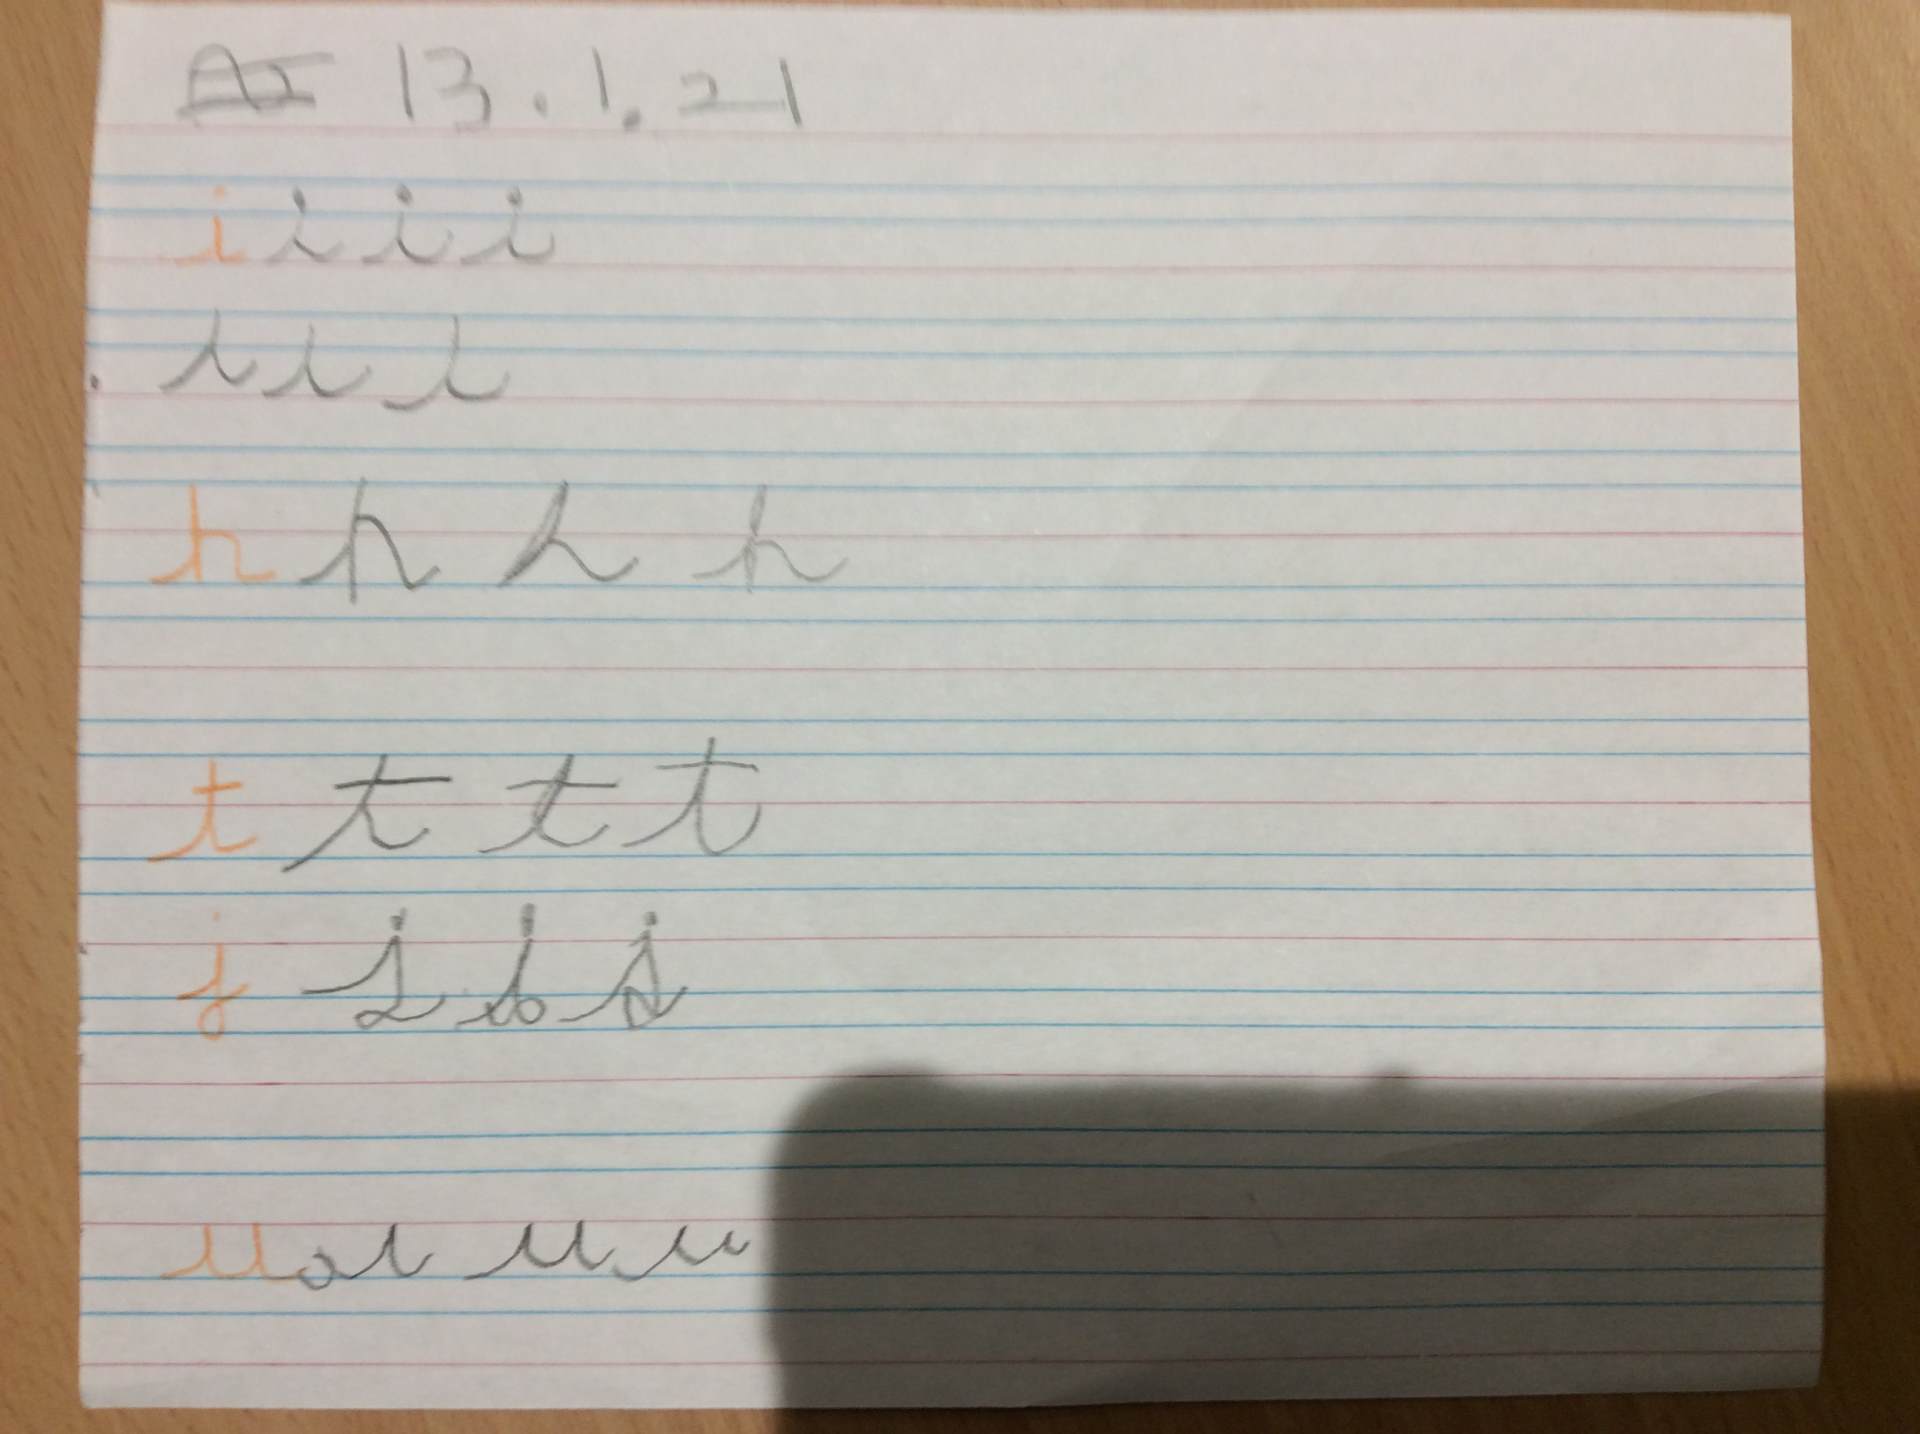 13.1.21
i i i i
i i i
h h h h
t t t t
j j j j
u u u u